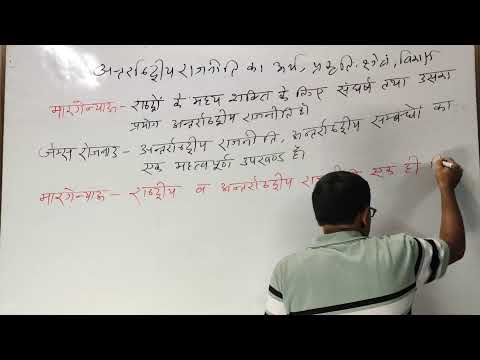 अन्तर्राष्ट्रीय राजनीति का अर्थ, प्रकृति, क्षेत्र एवं विकास
मारगेन्थाऊ- राष्ट्रों के मध्य शक्ति के लिए संघर्ष तथा उसका
प्रयोग अन्तर्राष्ट्रीय राजनीति है।
जेम्स रोजनाऊ - अन्तर्राष्ट्रीय राजनीति, अन्तर्राष्ट्रीय सम्बन्धों का
एक महत्वपूर्ण उपखण्ड है।
मारगेन्थाऊ - राष्ट्रीय व अन्तर्राष्ट्रीय एक ही